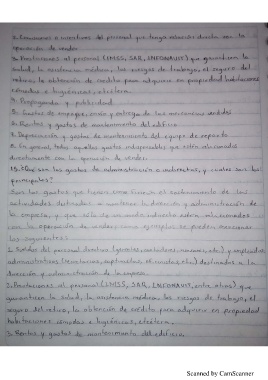 2. Comisiones e incentivos del personal que tenga relación directa con la
operación de vender
3. Prestaciones al personal (IMSS, SAR, INFONAVIT) que garanticen la
salud, la asistencia médica, los riesgos de trabajo, el seguro del
retiro, la obtención de crédito para adquirir en propiedad habitaciones
cómodas e higiénicas, etcétera.
4. Propaganda y publicidad
5. Gastos de empaque, envío y entrega de las mercancías vendidas
6. Rentas y gastos de mantenimiento del edificio
7. Depreciación y gastos de mantenimiento del equipo de reparto
8. En general todos aquellos gastos indispensables que estén relacionados
directamente con la operación de vender.
¿Qué son los gastos de administración o indirectos, y cuales son los
principales?
Son los gastos que tienen como el sostenimiento de las
actividades destinadas a mantener la dirección y administración de
la empresa, y que sólo de un modo indirecto están relacionados
con la operación de vender; como ejemplos se pueden mencionar
los siguientes:
1. Sueldos del personal directivo (gerentes, etc) y empleados
administrativos (secretarias, etc) destinados a la
dirección y administración de la empresa.
2. Prestaciones al personal (IMSS, SAR, INFONAVIT, entre otros) que
garanticen la salud, la asistencia médica, los riesgos de trabajo, el
seguro del retiro, la obtención de crédito para adquirir en propiedad
habitaciones cómodas e higiénicas, etcétera.
3. Rentas y gastos de mantenimiento del edificio.
Scanned by CamScanner